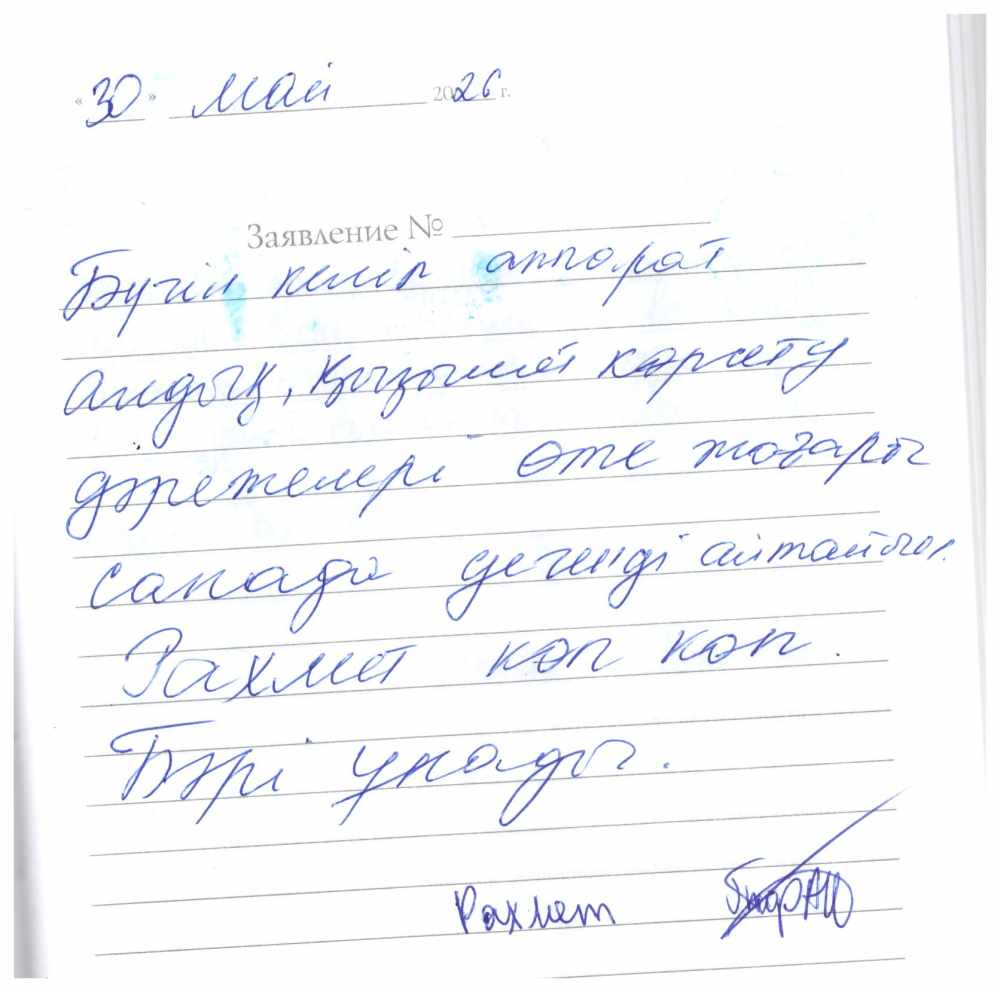 «30» май 2026 г.
Заявление №
Бүгін келіп аппарат
алдық, қызымет көрсету
дәрежелері өте жоғары
санада дегенді айтайын.
Рахмет көп көп.
Бәрі ұнады.
Рахмет